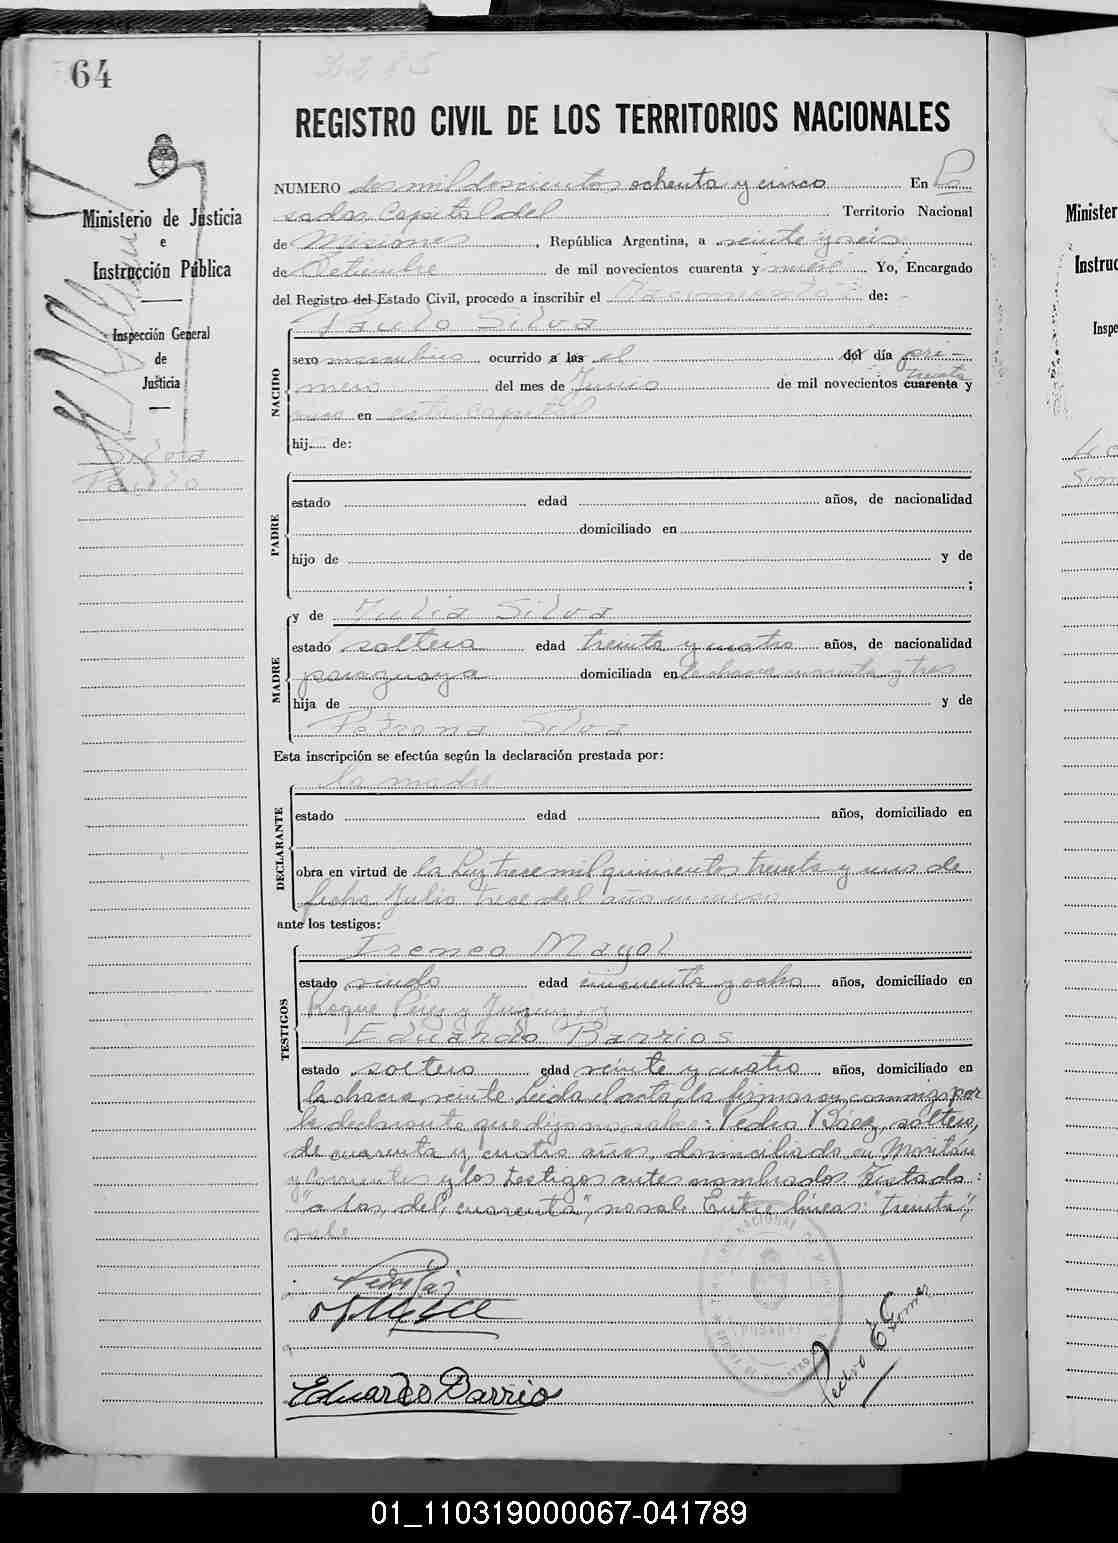 64
2285
REGISTRO CIVIL DE LOS TERRITORIOS NACIONALES
Ministerio de Justicia
e
Instrucción Pública
Inspección General
de
Justicia
Silva
Paulo
NUMERO dos mil doscientos ochenta y cinco En Po
sadas Capital del Territorio Nacional
de Misiones, República Argentina, a veinte y seis
de Setiembre de mil novecientos cuarenta y nueve Yo, Encargado
del Registro del Estado Civil, procedo a inscribir el Nacimiento de:
Paulo Silva
NACIDO
sexo masculino ocurrido a las el del día pri-
mero del mes de Junio de mil novecientos cuarenta y
treinta
en esta capital
hij..... de:
PADRE
estado edad años, de nacionalidad
domiciliado en
hijo de y de
;
y de Julia Silva
MADRE
estado soltera edad treinta y cuatro años, de nacionalidad
paraguaya domiciliada en la chacra cuarenta y tres
hija de y de
Petrona Silva
Esta inscripción se efectúa según la declaración prestada por:
la madre
DECLARANTE
estado edad años, domiciliado en
obra en virtud de la Ley trece mil quinientos treinta y uno de
fecha Julio trece del año en curso
ante los testigos:
TESTIGOS
Ireneo Mayol
estado viudo edad cincuenta y ocho años, domiciliado en
Roque Pérez y
Eduardo Barrios
estado soltero edad veinte y cuatro años, domiciliado en
la chacra veinte Leida el acta, la firmaron conmigo por
la declarante que dijo no saber: Pedro Báez, soltero,
de cuarenta y cuatro años, domiciliado en
y Corrientes y los testigos antes nombrados. Testado:
"a las, del, cuarenta", no vale. Entre líneas: "treinta",
vale
Eduardo Barrio
Pedro E Gomez
Minister
Instruc
Inspe
01_110319000067-041789